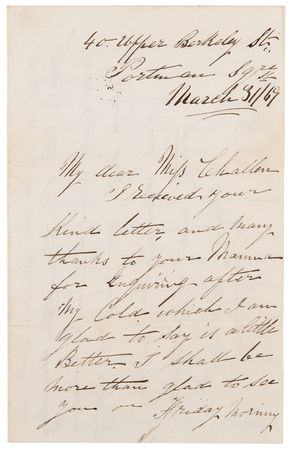 40 Upper Berkeley St.
Portman Sqre
March 31/67
My dear Miss Challen
I received your
Kind letter, and many
thanks to your Mamma
for Enquiring after
My Cold which I am
glad to say is a little
Better. I shall be
more than glad to see
you on Friday Morning